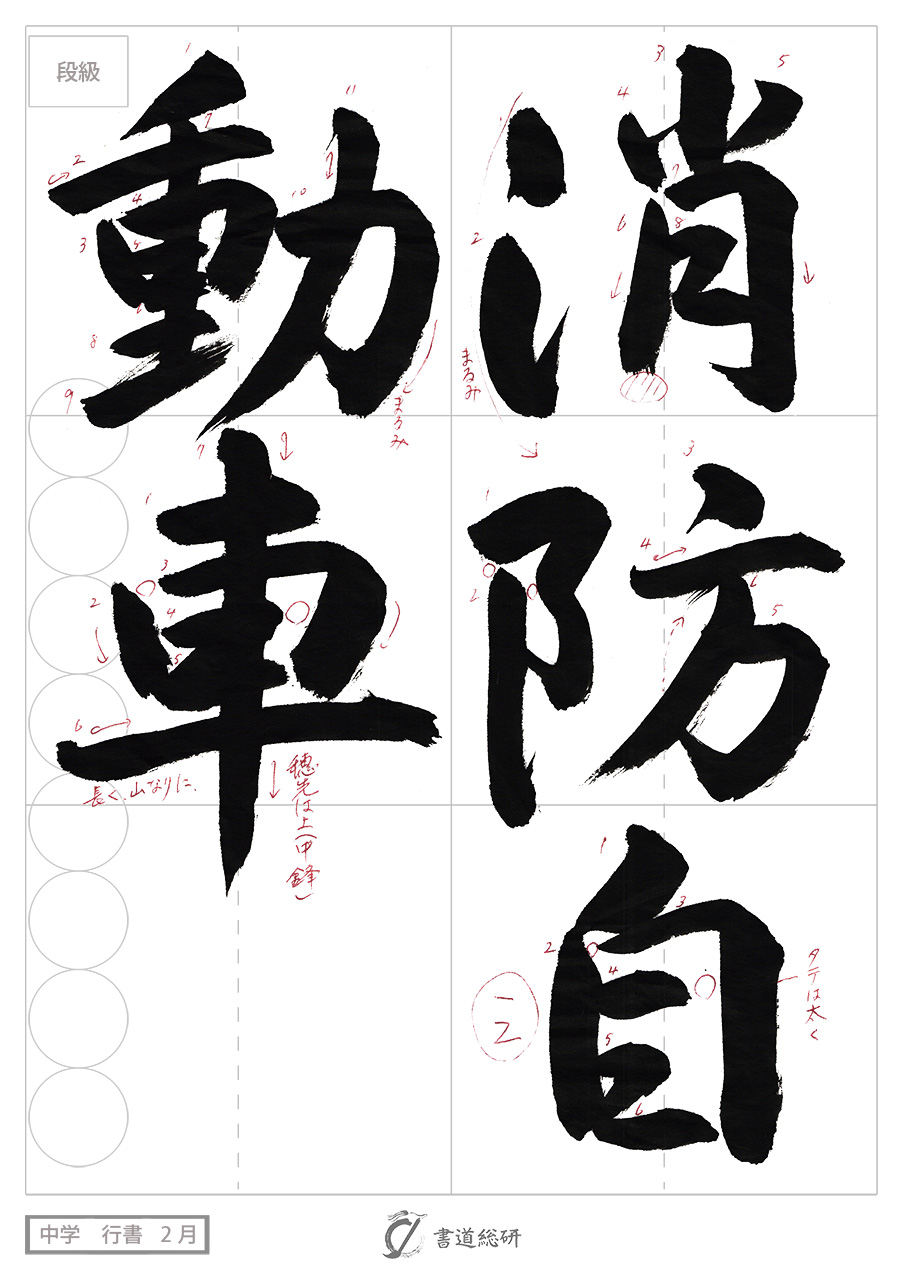 消防自
動車
段級
まるみ
まるみ
タテは太く
長く、山なりに、
穂先は上(中鋒)
中学 行書 2月
書道総研